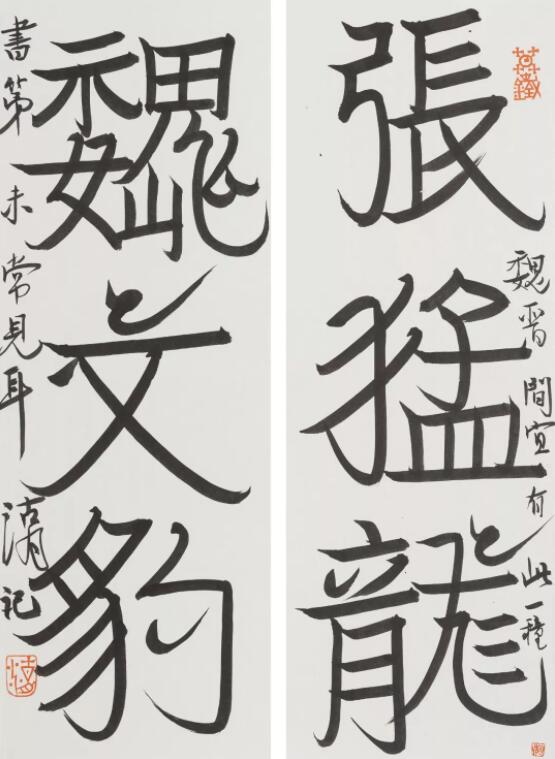 張猛龍
魏晉間宜有此一種
魏文豹
書第未常見耳
記